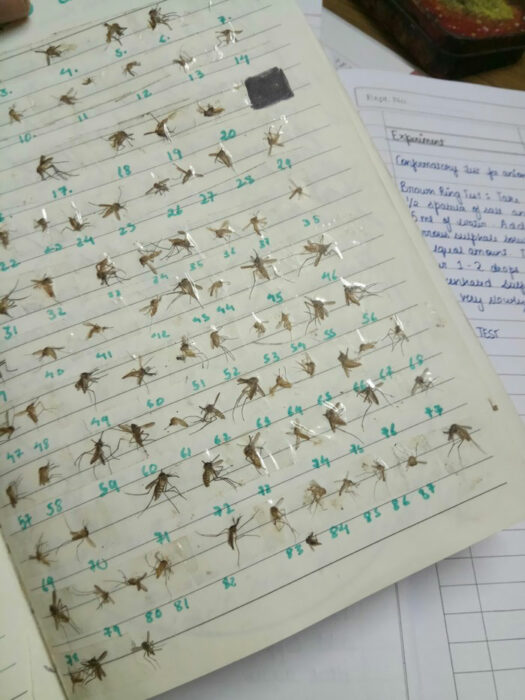 3. 4. 5. 6. 7.
10. 11 12 13 14
17. 18 19 20
22 23 24 25 26 27 28 29
31 32 33 34 35 36 31 38
40 41 42 43 44 45 46
47 48 49 50 51 52 53 54 55 56
57 58 59 60 61 62 63 64 65 66 67 68
69 70 71 72 73 74 75 76 77
78 79 80 81 82 83 84 85 86 87
Expt. No.
Experiment
Confirmatory Test for
Brown Ring Test : Take
1/2 spatula of salt
5 ml of water. Add
sulphate
equal amount. T
1-2 drops
very slowly
TEST